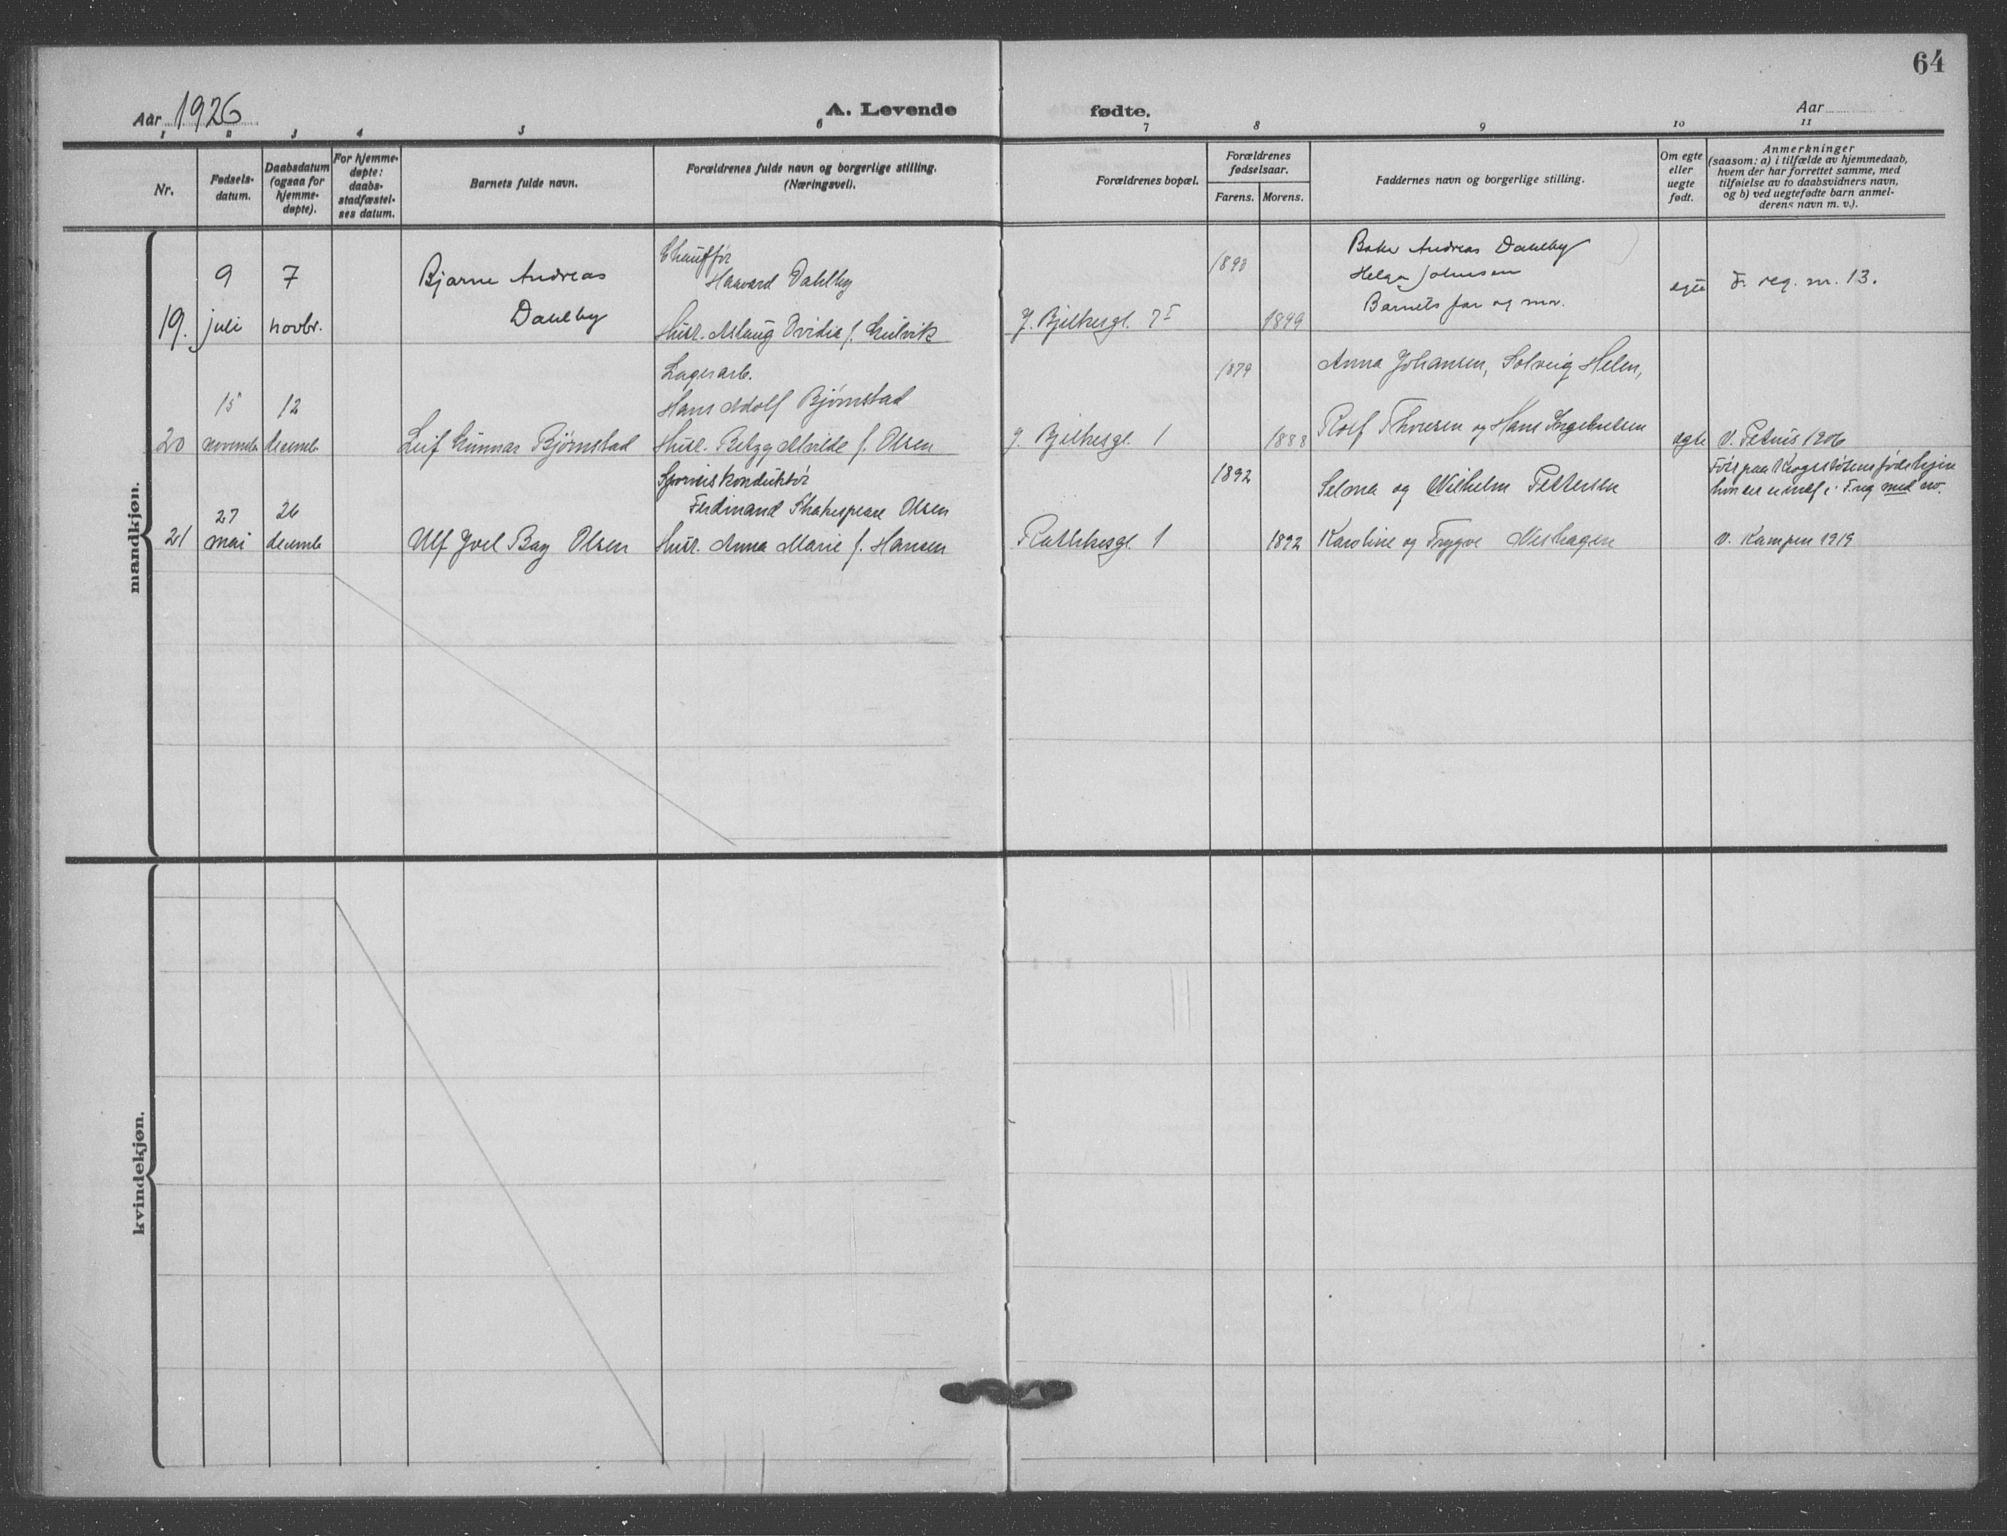 64
Aar 1926
A. Levende fødte.
Aar
1 2 3 4 5 6 7 8 9 10 11
Nr.
Fødsels-
datum.
Daabsdatum
(ogsaa for
hjemme-
døpte).
For hjemme-
døpte:
daabs-
stadfæstel-
ses datum.
Barnets fulde navn.
Forældrenes fulde navn og borgerlige stilling.
(Næringsvei).
Forældrenes bopæl.
Forældrenes
fødselsaar.
Farens. Morens.
Faddernes navn og borgerlige stilling.
Om egte
eller
uegte
født.
Anmerkninger
(saasom: a) i tilfælde av hjemmedaab,
hvem der har forrettet samme, med
tilføielse av to daabsvidners navn,
og b) ved uegtefødte barn anmel-
derens navn m. v.).
mandkjøn.
19.
9
juli
7
novbr.
Bjarne Andreas
Dahlby
Chauffør
Haavard Dahlby
Hust. Aslaug Ovidia f. Gulvik
J. Bjelkesgt. 7 I
1890
1899
Baker Andreas Dahlby
Helga Johnsen
Barnets far og mor.
egte
F. reg. nr. 13.
20
15
novembr
12
decembr
Leif Gunnar Bjørnstad
Lagerarb.
Hans Adolf Bjørnstad
Hust. Betzy Alvilde f. Olsen
J. Bjelkesgt. 1
1879
1888
Anna Johansen, Solveig Helen,
Rolf Thoresen og Hans Ingebretsen
egte
V. Petrus 1906
21
27
mai
26
decembr
Ulf Joel Bay Olsen
Sporveiskonduktør
Ferdinand Shakespeare Olsen
Hust. Anna Marie f. Hansen
Rathkesgt. 1
1892
1892
Selma og Wilhelm Pettersen
Karoline og Trygve
Født paa
med nr.
V. Kampen 1919
kvindekjøn.